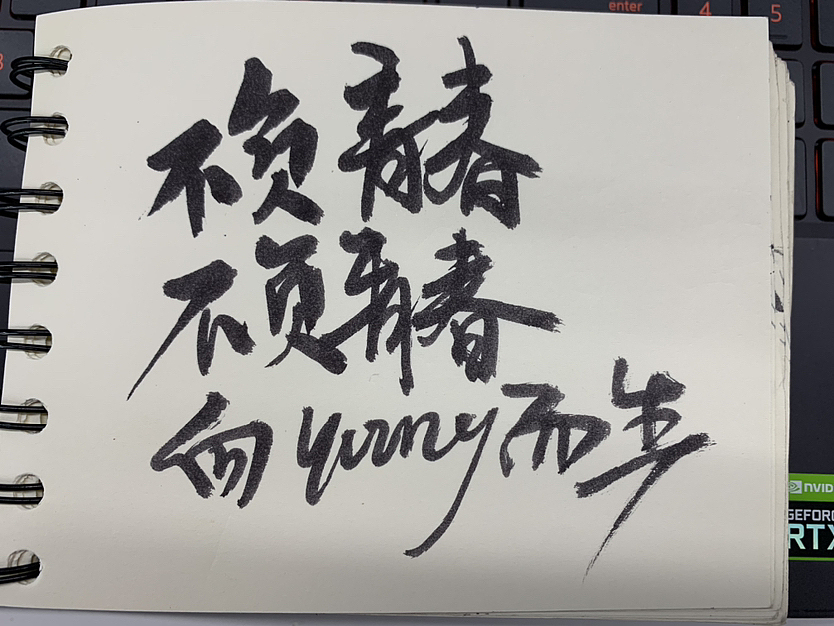 enter
4
5
不负青春
不负青春
向young而生
NVID
GEFORC
RTX